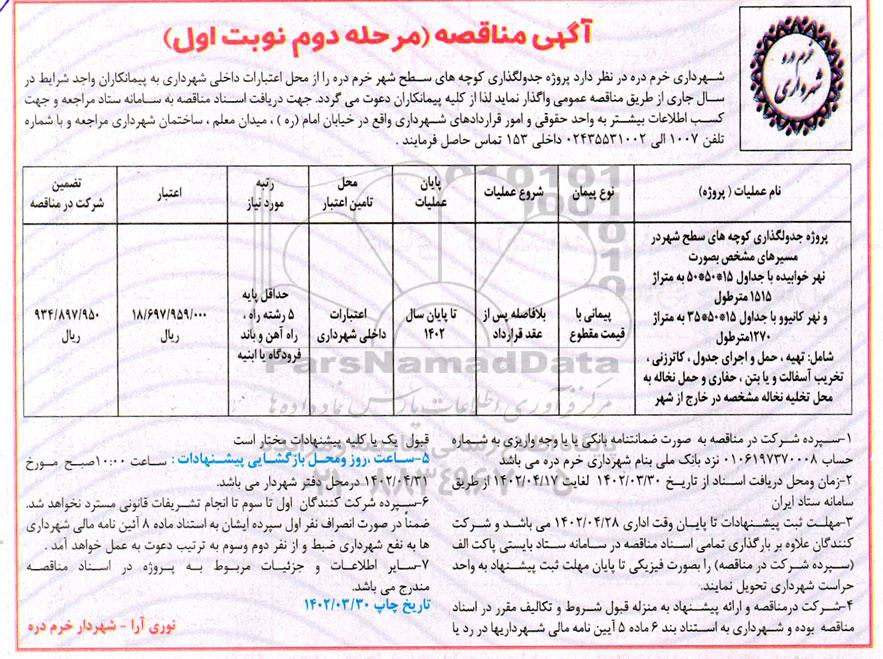 آگهی مناقصه (مرحله دوم نوبت اول)
خرم دره
شهرداری
شهرداری خرم دره در نظر دارد پروژه جدولگذاری کوچه های سطح شهر خرم دره را از محل اعتبارات داخلی شهرداری به پیمانکاران واجد شرایط در
سال جاری از طریق مناقصه عمومی واگذار نماید لذا از کلیه پیمانکاران دعوت می گردد. جهت دریافت اسناد مناقصه به سامانه ستاد مراجعه و جهت
کسب اطلاعات بیشتر به واحد حقوقی و امور قراردادهای شهرداری واقع در خیابان امام (ره) ، میدان معلم ، ساختمان شهرداری مراجعه و با شماره
تلفن ۱۰۰۷ الی ۰۲۴۳۵۵۳۱۰۰۲ داخلی ۱۵۳ تماس حاصل فرمایند .
نام عملیات ( پروژه)
نوع پیمان
شروع عملیات
پایان
عملیات
محل
تامین اعتبار
رتبه
مورد نیاز
اعتبار
تضمین
شرکت در مناقصه
پروژه جدولگذاری کوچه های سطح شهر در
مسیرهای مشخص بصورت
نهر خوابیده با جداول ۱۵*۵۰*۵۰ به متراژ
۱۵۱۵ مترطول
و نهر کانیوو با جداول ۱۵*۵۰*۳۵ به متراژ
۱۲۷۰مترطول
شامل: تهیه ، حمل و اجرای جدول ، کاترزنی ،
تخریب آسفالت و یا بتن ، حفاری و حمل نخاله به
محل تخلیه نخاله مشخصه در خارج از شهر
پیمانی با
قیمت مقطوع
بلافاصله پس از
عقد قرارداد
تا پایان سال
۱۴۰۲
اعتبارات
داخلی شهرداری
حداقل پایه
۵ رشته راه ،
راه آهن و باند
فرودگاه یا ابنیه
۱۸/۶۹۷/۹۵۹/۰۰۰
ریال
۹۳۴/۸۹۷/۹۵۰
ریال
ParsNamadData
مرکز فرآوری اطلاعات پارس نماد داده ها
۱-سپرده شرکت در مناقصه به صورت ضمانتنامه بانکی یا با وجه واریزی به شماره
حساب ۰۱۰۶۱۹۷۳۷۰۰۰۸ نزد بانک ملی بنام شهرداری خرم دره می باشد
۲-زمان ومحل دریافت اسناد از تاریخ ۱۴۰۲/۰۳/۳۰ لغایت ۱۴۰۲/۰۴/۱۷ از طریق
سامانه ستاد ایران
۳-مهلت ثبت پیشنهادات تا پایان وقت اداری ۱۴۰۲/۰۴/۲۸ می باشد و شرکت
کنندگان علاوه بر بارگذاری تمامی اسناد مناقصه در سامانه ستاد بایستی پاکت الف
(سپرده شرکت در مناقصه) را بصورت فیزیکی تا پایان مهلت ثبت پیشنهاد به واحد
حراست شهرداری تحویل نمایند.
۴-شرکت درمناقصه و ارائه پیشنهاد به منزله قبول شروط و تکالیف مقرر در اسناد
مناقصه بوده و شهرداری به استناد بند ۶ ماده ۵ آیین نامه مالی شهرداریها در رد یا
قبول یک یا کلیه پیشنهادات مختار است
۵-ساعت ،روز ومحل بازگشایی پیشنهادات : ساعت ۱۰:۰۰صبح مورخ
۱۴۰۲/۰۴/۳۱ درمحل دفتر شهردار می باشد.
۶-سپرده شرکت کنندگان اول تا سوم تا انجام تشریفات قانونی مسترد نخواهد شد.
ضمنا در صورت انصراف نفر اول سپرده ایشان به استناد ماده ۸ آئین نامه مالی شهرداری
ها به نفع شهرداری ضبط و از نفر دوم وسوم به ترتیب دعوت به عمل خواهد آمد .
۷-سایر اطلاعات و جزئیات مربوط به پروژه در اسناد مناقصه
مندرج می باشد.
تاریخ چاپ ۱۴۰۲/۰۳/۳۰
نوری آرا - شهردار خرم دره